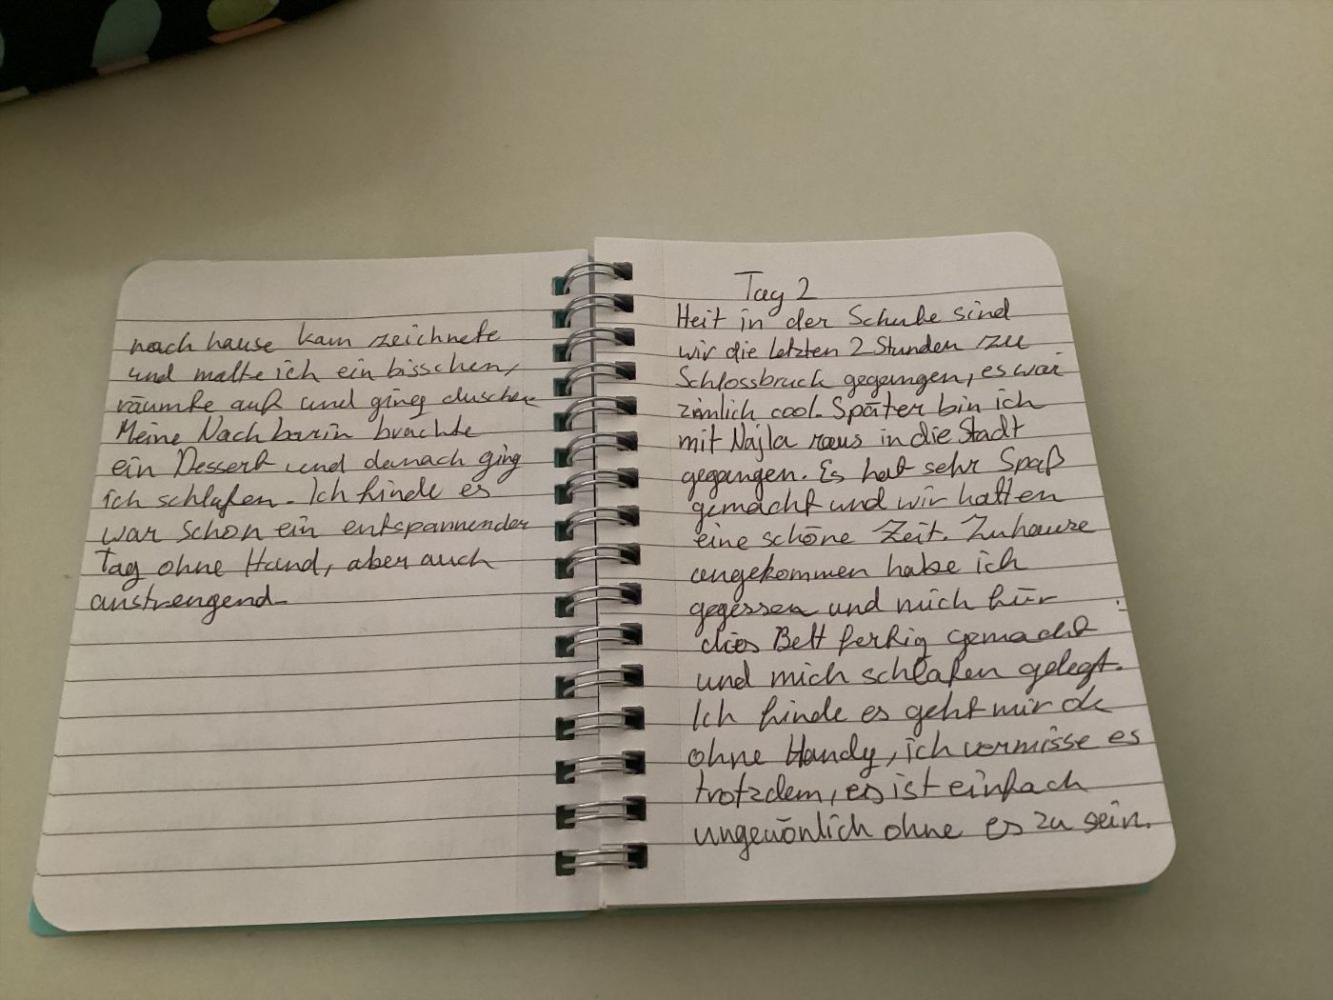 nach hause kam zeichnete
und malte ich ein bisschen,
räumte auf und ging duschen
Meine Nachbarin brachte
ein Dessert und danach ging
ich schlafen. Ich finde es
war schon ein entspannender
Tag ohne Hand, aber auch
anstrengend.
Tag 2
Heit in der Schule sind
wir die letzten 2 Stunden zu
Schlossbruck gegangen, es war
zimlich cool. Später bin ich
mit Najla raus in die Stadt
gegangen. Es hat sehr Spaß
gemacht und wir hatten
eine schöne Zeit. Zuhause
angekommen habe ich
gegessen und mich für
das Bett fertig gemacht
und mich schlafen gelegt.
Ich finde es geht mir ok
ohne Handy, ich vermisse es
trotzdem, es ist einfach
ungewönlich ohne es zu sein.